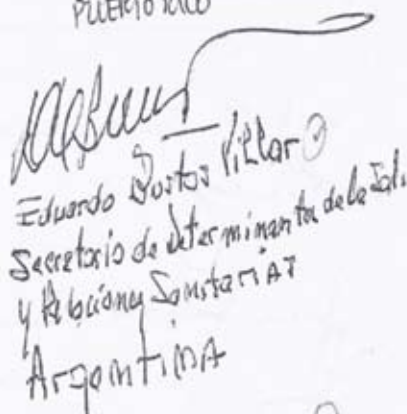 PUERTO RICO
Eduardo Bustos Villar
Secretario de Determinantes de la Salu
y Relaciones Sanitarias
Argentina